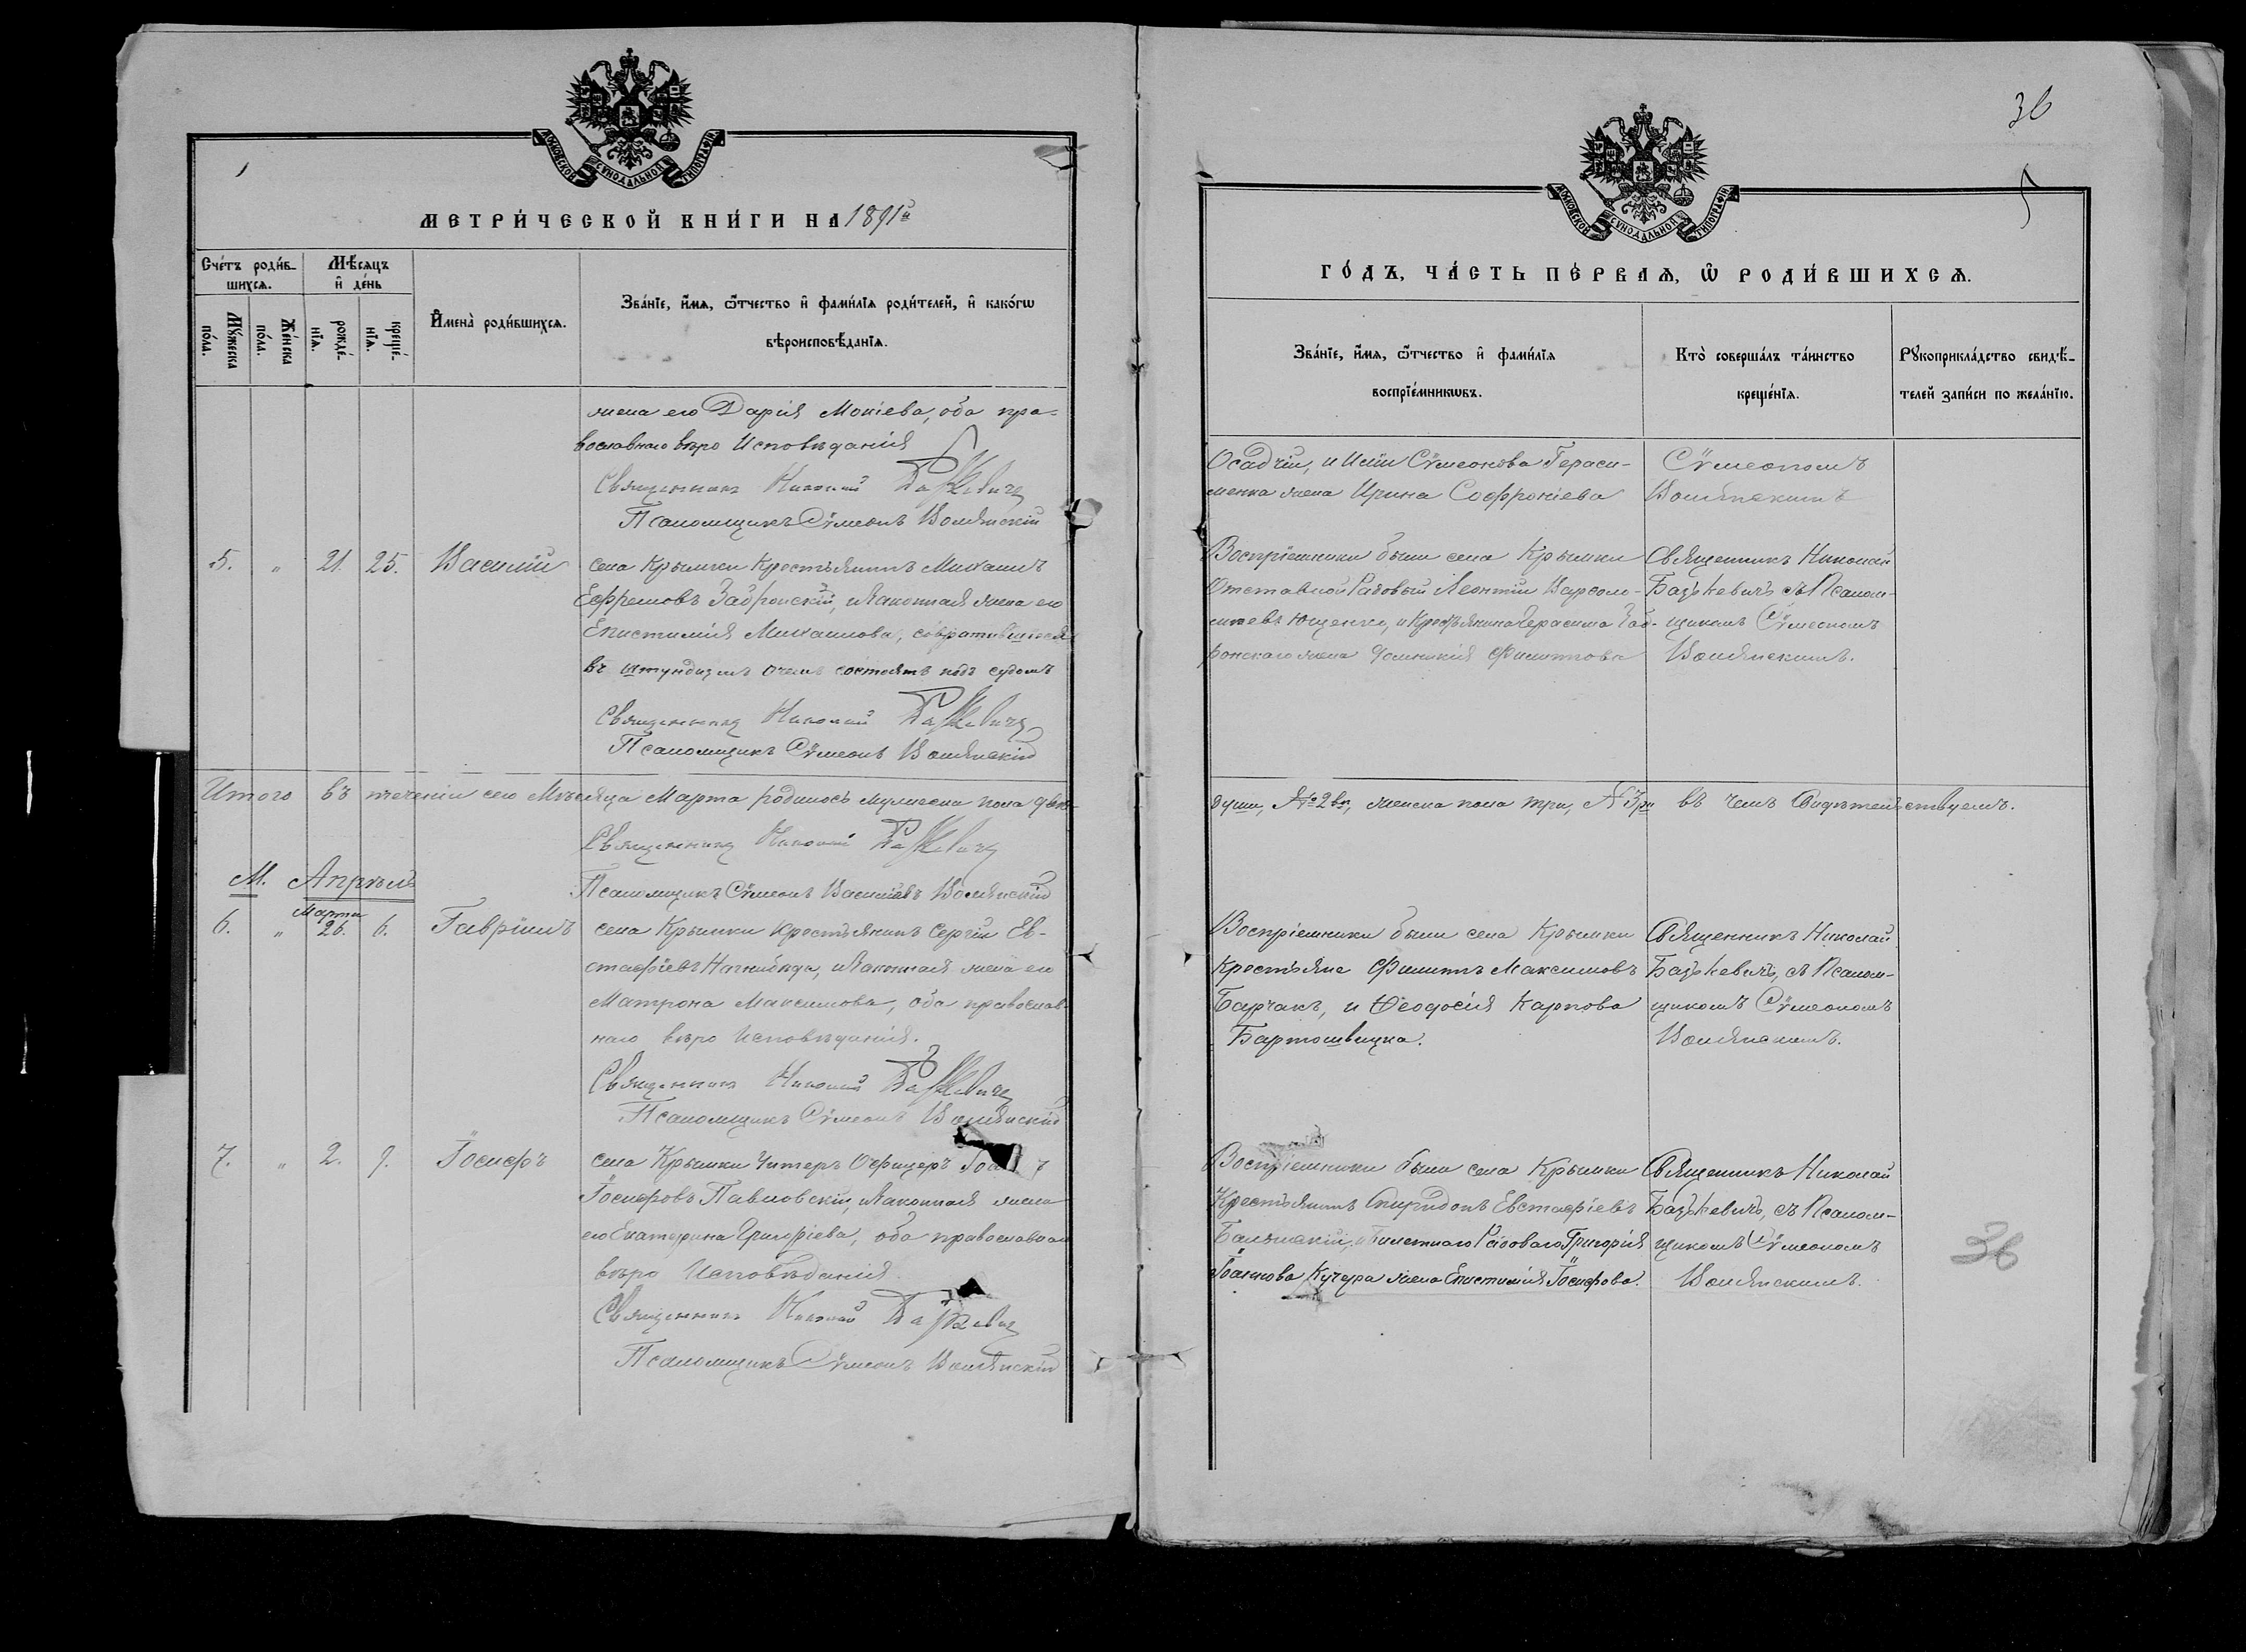 МЕТРИ́ЧЕСКОЙ КНИ́ГИ НА 1891й
Сче́тъ роди́в-
шихся.
Мѣ́сяцъ
и҆ де́нь
Мꙋ́жеска
по́ла.
Же́нска
по́ла.
рожде́-
нїя.
креще́-
нїя.
И҆мена̀ роди́вшихся.
Зва́нїе, и҆́мя, ѻ҆́тчество и҆ фами́лїя роди́телей, и҆ како́гѡ
вѣроисповѣ́данїя.
жена его Дарія Мокіева, оба пра-
вославнаго вѣро Исповѣданія
Священникъ Николай Базькевичъ
Псаломщикъ Сѵмеонъ Волянскій
5. " 21. 25. Василій
села Крымки Крестьянинъ Михаилъ
Ефремовъ Забронскій, и законная жена его
Епистимія Михаилова, совратившіеся
въ штундизмъ о чемъ состоятъ подъ судомъ
Священникъ Николай Базькевичъ
Псаломщикъ Сѵмеонъ Волянскій
Итого въ теченіи сего Мѣсяца Марта родилось мужеска пола двѣ
Священникъ Николай Базькевичъ
М. Апрѣль
Псаломщикъ Сѵмеонъ Васильевъ Волянскій
Марта
6. " 26. 6. Гавріилъ
села Крымки Крестьянинъ Сергій Ев-
стафіевъ Нагнибида, и законная жена его
Матрона Максимова, оба православ-
наго вѣро Исповѣданія.
Священникъ Николай Базькевичъ
Псаломщикъ Сѵмеонъ Волянскій
7. " 2. 9. Іосифъ
села Крымки Унтеръ Офицеръ
Іосифовъ Павловскій, и законная жена
его Екатерина Григоріева, оба православнаго
вѣро Исповѣданія.
Священникъ Николай Базькевичъ
Псаломщикъ Сѵмеонъ Волянскій
МОСКОВСКОЙ СѴНОДАЛЬНОЙ ТИПОГРАФІИ
36
МОСКОВСКОЙ СѴНОДАЛЬНОЙ ТИПОГРАФІИ
ГО́ДЪ, ЧА́СТЬ ПЕ́РВАЯ, Ѽ РОДИ́ВШИХСЯ.
Зва́нїе, и҆́мя, ѻ҆́тчество и҆ фами́лїя
воспрїе́мникѡвъ.
Кто̀ соверша́лъ та́инство
креще́нїя.
Рꙋкоприкла́дство свидѣ́-
телей за́писи по жела́нїю.
Осадчій, и Иліи Сѵмеонова Гераси-
менка жена Ирина Софроніева
Сѵмеономъ
Волянскимъ
Воспріемники были села Крымки
Отставной Рядовый Леонтій Варфоло-
міевъ Ющенко, и Крестьянина Герасима Заб-
ронскаго жена Домникія Филиппова
Священникъ Николай
Базькевичъ съ Псалом-
щикомъ Сѵмеономъ
Волянскимъ.
души, № 2ва, женска пола три, № 3ри въ чемъ Свидѣтельствуемъ.
Воспріемники были села Крымки
Крестьяне Филиппъ Максимовъ
Барчакъ, и Ѳеодосія Карпова
Бартошвицка.
Священникъ Николай
Базькевичъ, съ Псалом-
щикомъ Сѵмеономъ
Волянскимъ.
Воспріемники были села Крымки
Крестьянинъ Спиридонъ Евстафіевъ
и Билетнаго Рядоваго Григорія
Іоаннова Кучера жена Епистимія Іосифова.
Священникъ Николай
Базькевичъ, съ Псалом-
щикомъ Сѵмеономъ
Волянскимъ.
36